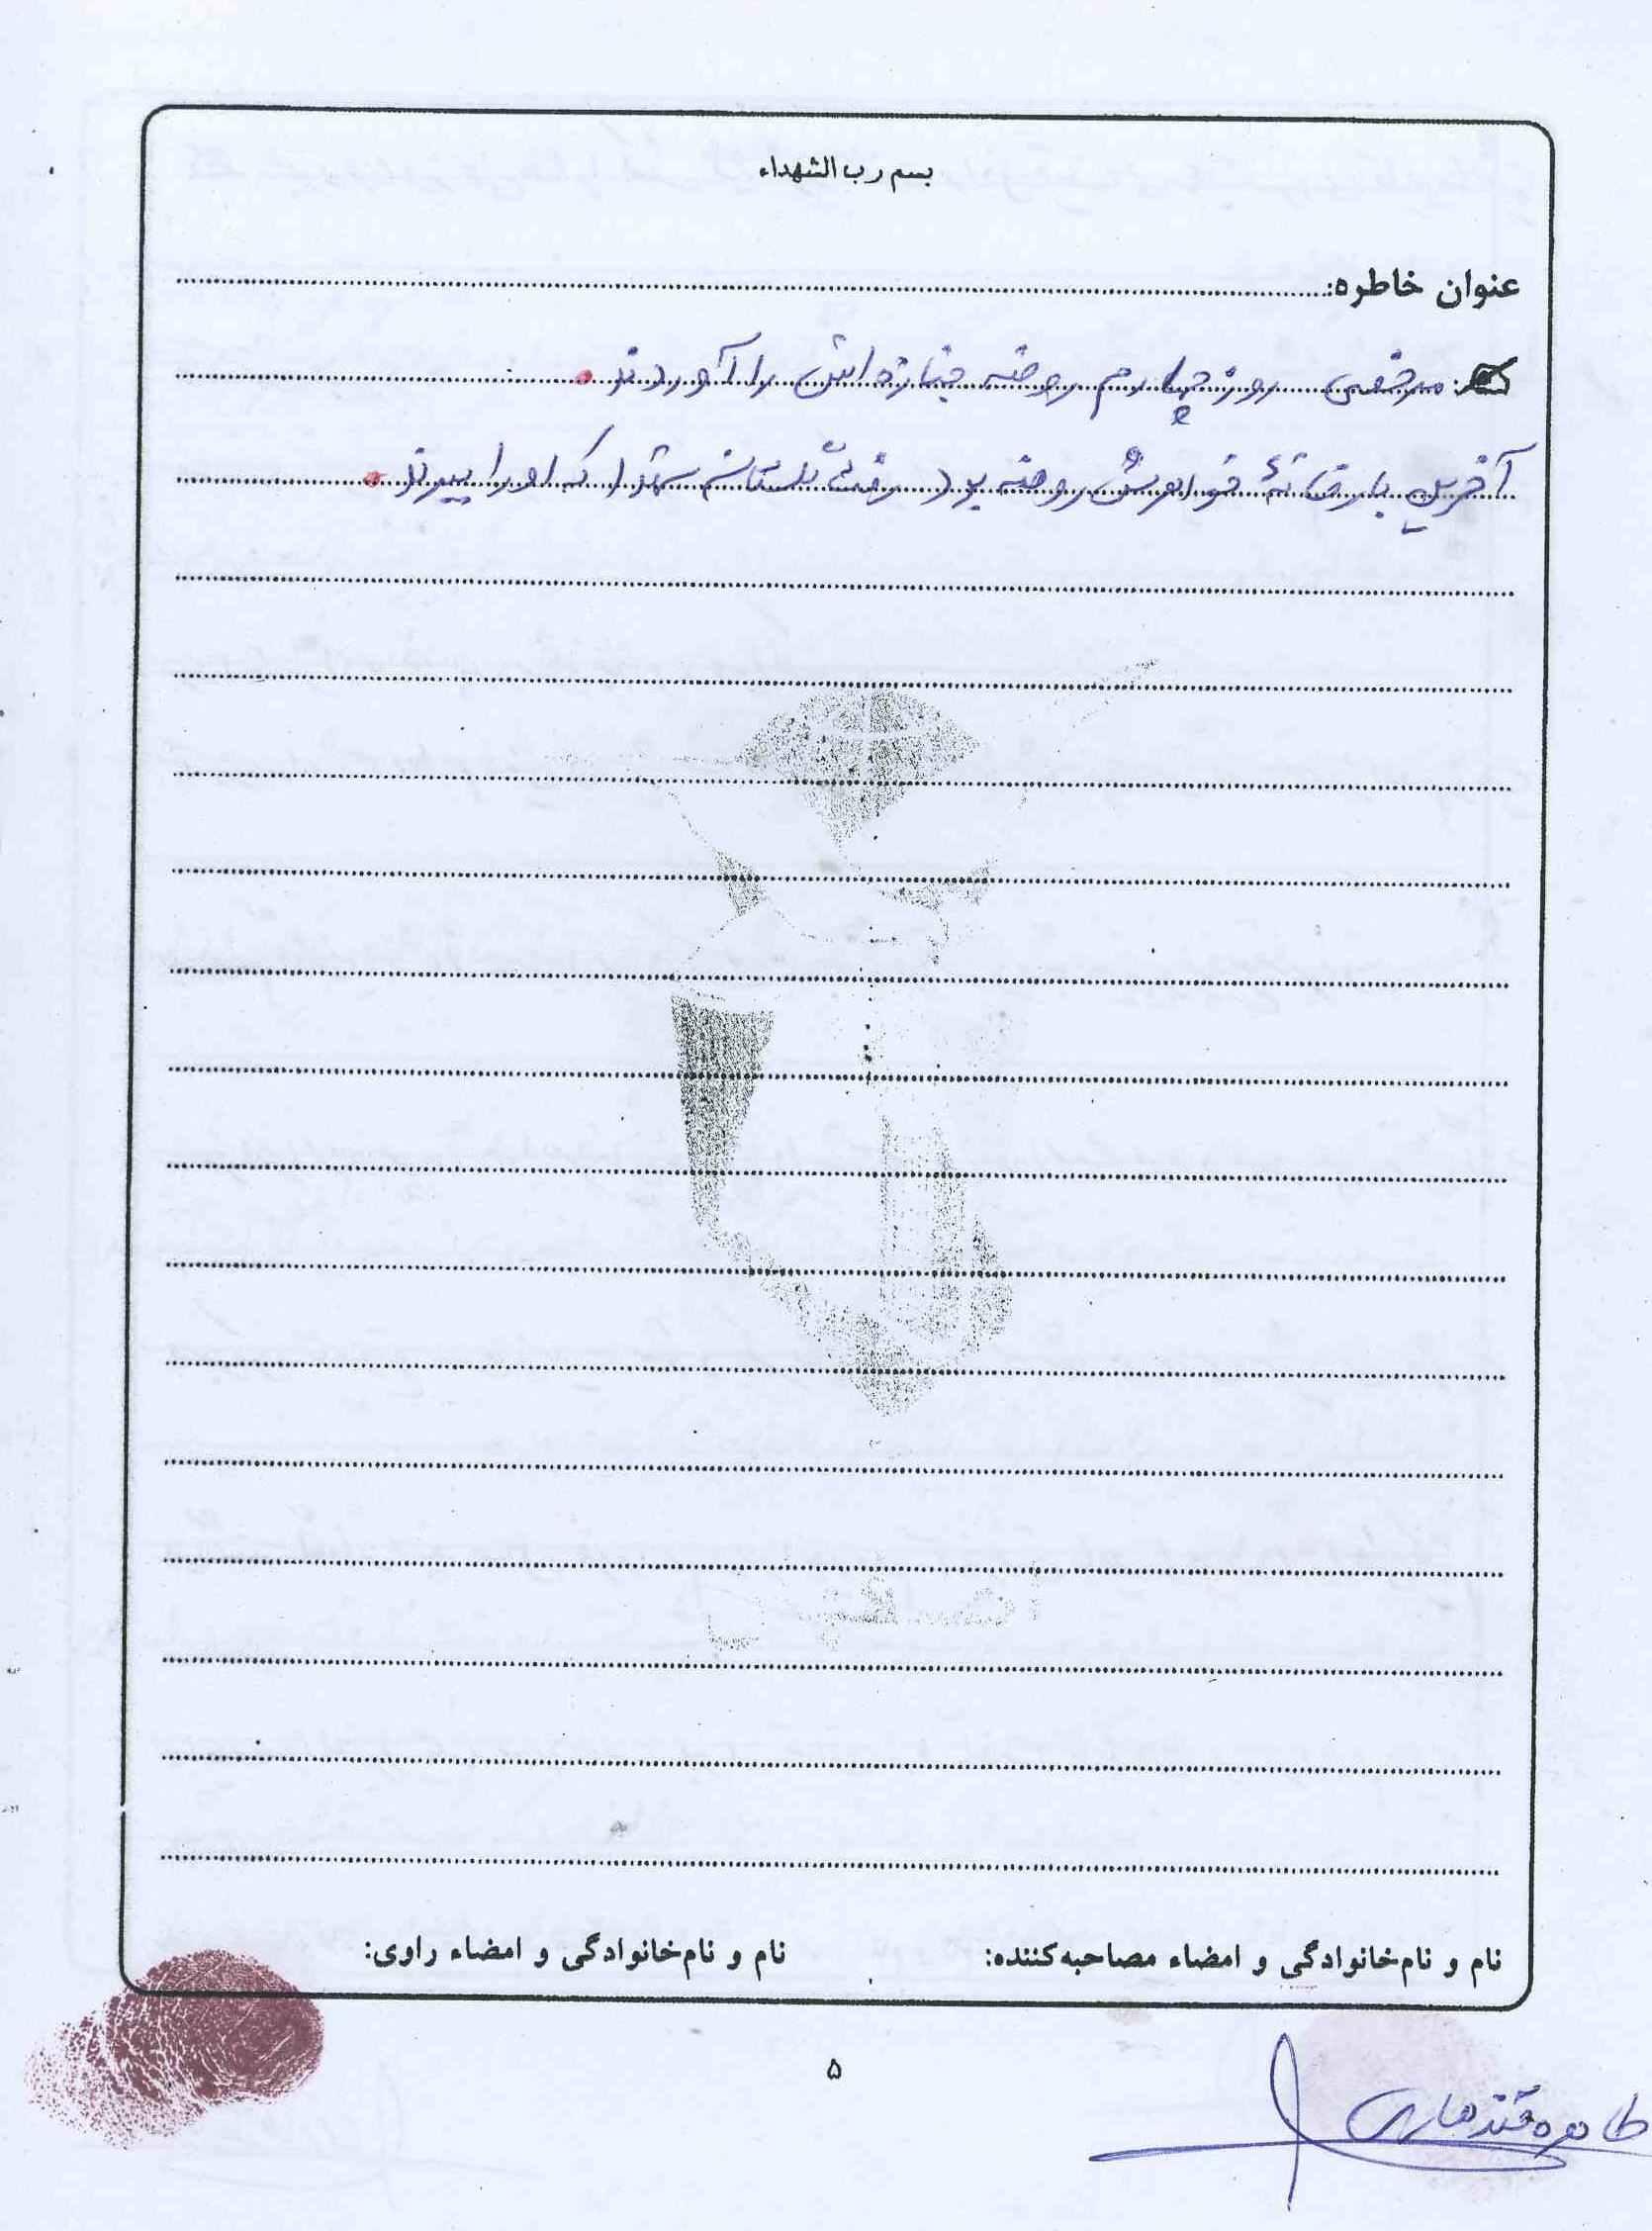 بسم رب الشهداء
عنوان خاطره:
مرخصی روز چهارم روضه جنازه اش را آوردند.
آخرین بار خانهٔ خواهرش روضه بود رفت گلستان شهدا که او را ببرند.
نام و نام‌خانوادگی و امضاء مصاحبه‌کننده: نام و نام‌خانوادگی و امضاء راوی:
۵
طاهره قندهاری